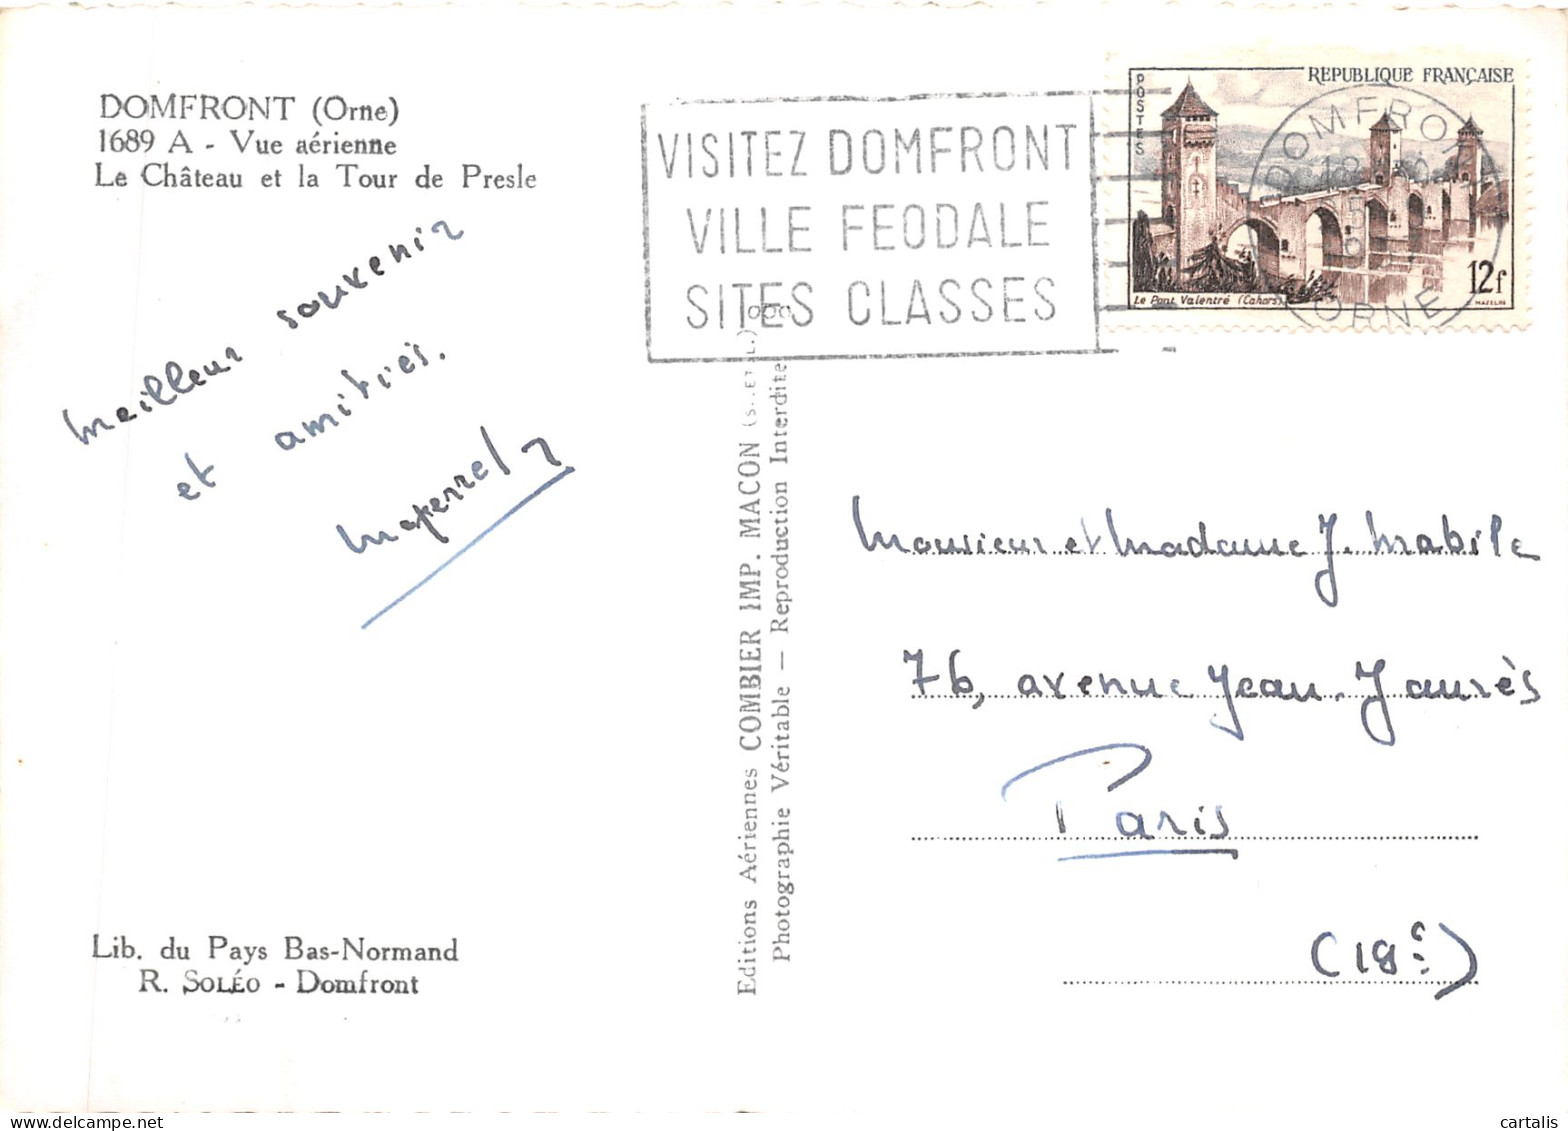 DOMFRONT (Orne)
1689 A - Vue aérienne
Le Château et la Tour de Presle
meilleur souvenir
et amitiés.
Lib. du Pays Bas-Normand
R. SOLÉO - Domfront
Editions Aériennes COMBIER IMP. MACON
Photographie Véritable — Reproduction Interdite
VISITEZ DOMFRONT
VILLE FEODALE
SITES CLASSES
REPUBLIQUE FRANÇAISE
POSTES
Le Pont Valentré (Cahors)
12f
MAZELIN
DOMFRONT
ORNE
Monsieur et Madame J. Mabile
76, avenue Jean-Jaurès
Paris
(19e)
cartalis